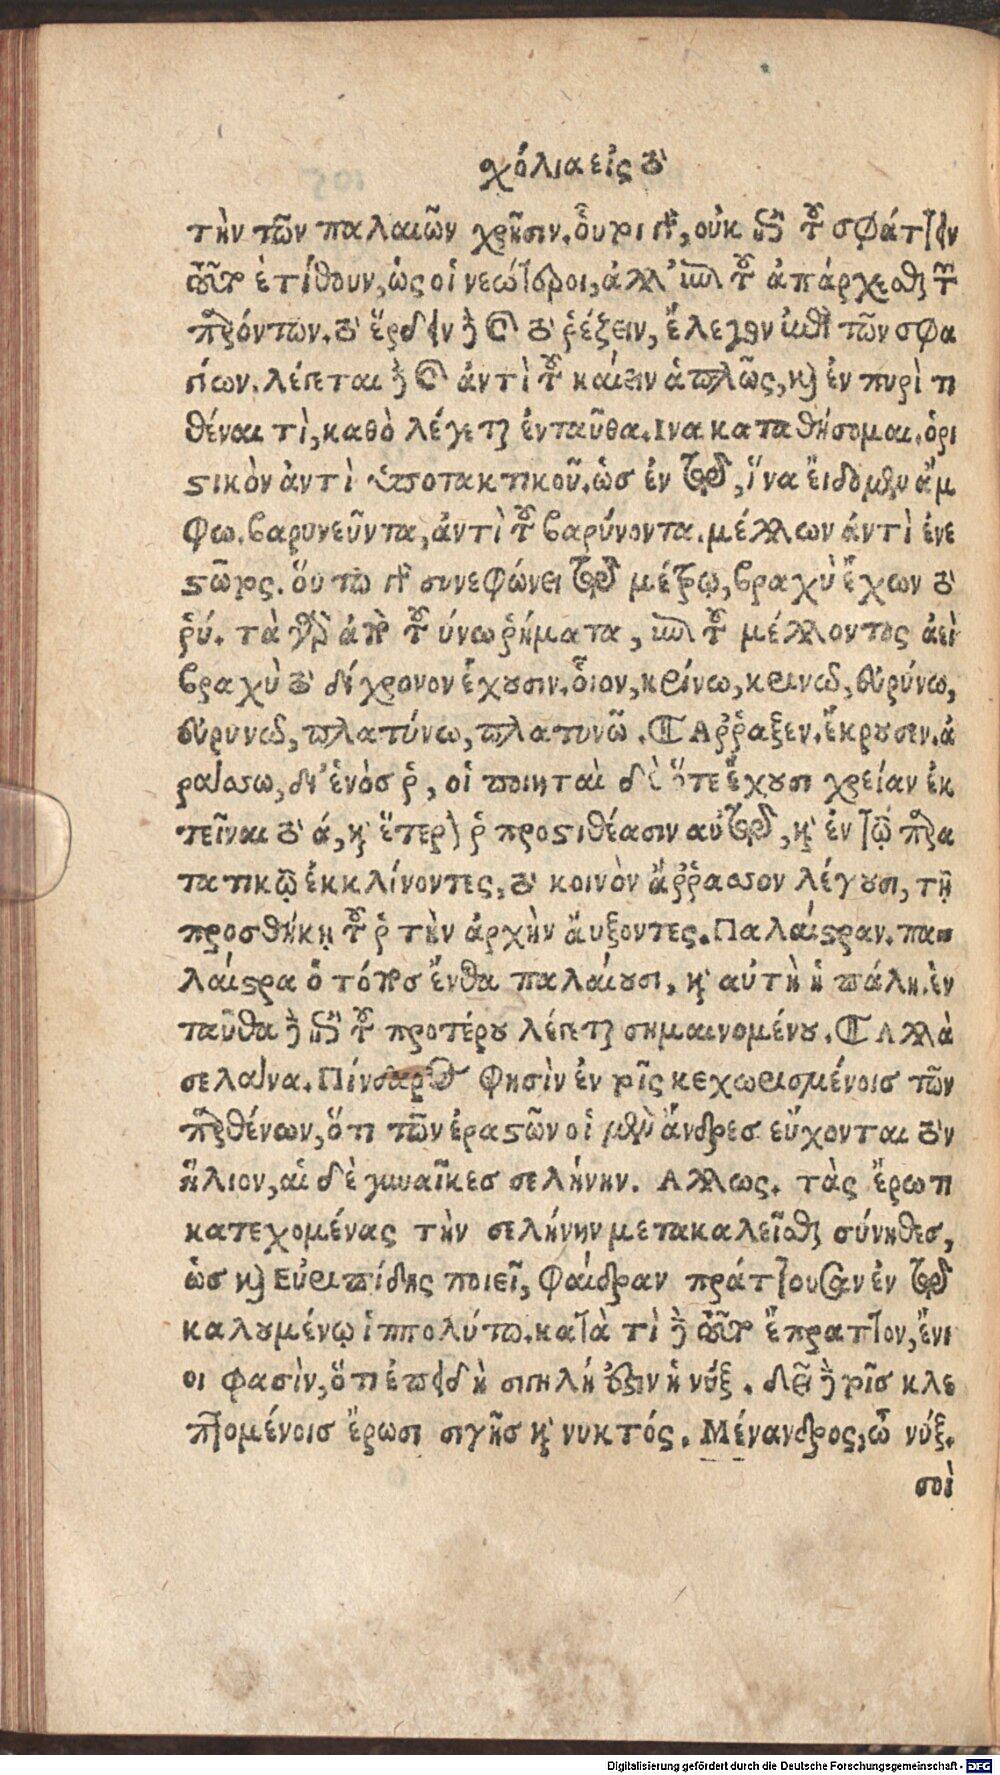 χόλια εἰς τὸ
τὴν τῶν παλαιῶν χρῆσιν. οὗτοι γὰρ, οὐκ ἐπὶ τοῦ σφάττειν
τοῦτο ἐτίθουν, ὡς οἱ νεώτεροι, ἀλλ' ἐπὶ τοῦ ἀπάρχεσθαι τῶν
παρόντων. τὸ ἔρδειν δὲ καὶ τὸ ῥέξειν, ἔλεγον ἐπὶ τῶν σφα
γίων. λέγεται δὲ καὶ ἀντὶ τοῦ καίειν ἁπλῶς, καὶ ἐν πυρὶ τι
θέναι τὶ, καθὸ λέγεται ἐνταῦθα. Ινα καταθήσομαι. ὁρι
στικὸν ἀντὶ ὑποτακτικοῦ. ὡσ ἐν τῷ, ἵνα εἴδομεν ἄμ
φω. βαρυνεῦντα, ἀντὶ τοῦ βαρύνοντα. μέλλων ἀντὶ ἐνε
στῶτος. οὕτω γὰρ συνεφώνει τῷ μέτρῳ, βραχὺ ἔχων τὸ
ῥύ. τὰ γὰρ ἀπὸ τοῦ ύνω ῥήματα, ἐπὶ τοῦ μέλλοντος ἀεὶ
βραχὺ τὸ δίχρονον ἔχουσιν. οἷον, κρίνω, κρινῶ, θύρύνω,
θύρυνῶ, πλατύνω, πλατυνῶ. Αῤῥαξεν. ἔκρουσεν. ἀ
ράσσω, δι' ἑνὸσ ῥ, οἱ ποιηταὶ δὲ ὅτε ἔχουσι χρείαν ἐκ
τεῖναι τὸ ά, καὶ ἕτερον ῥ προστιθέασιν αὐτῷ, καὶ ἐν τῷ παρα
τατικῷ ἐκκλίνοντες, τὸ κοινὸν ἄῤῥασσον λέγουσι, τῇ
προσθήκῃ τοῦ ῥ τὴν ἀρχὴν ἄυξοντες. Παλαίστραν. πα-
λαίστρα ὁ τόπος ἔνθα παλαίουσι, καὶ αὐτὴ ἡ πάλη. ἐν
ταῦθα δὲ ἐπὶ τοῦ προτέρου λέγεται σημαινομένου. Αλλὰ
σελάνα. Πίνδαρος φησὶν ἐν τοῖς κεχωρισμένοισ τῶν
παρθένων, ὅτι τῶν ἐραστῶν οἱ μὲν ἄνδρεσ εὔχονται τὸν
ἥλιον, αἱ δὲ γυναῖκεσ σελήνην. Αλλως. τὰς ἔρωτι
κατεχομένας τὴν σελήνην μετακαλεῖσθαι σύνηθεσ,
ὡσ καὶ Εὐριπίδης ποιεῖ, φαίδραν πράττουσαν ἐν τῷ
καλουμένῳ ἱππολύτῳ. κατὰ τὶ δὲ τοῦτο ἔπραττον, ἔνι
οι φασὶν, ὅτι ἐπειδὴ σιγηλή ἐστιν ἡ νύξ. δεῖ δὲ τοῖσ κλε
πτομένοισ ἔρωσι σιγῆσ καὶ νυκτός. Μένανδρος, ὦ νύξ.
σοὶ
Digitalisierung gefördert durch die Deutsche Forschungsgemeinschaft - DFG